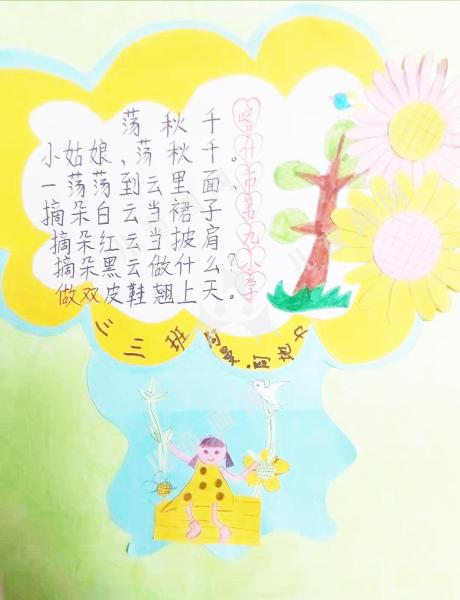 荡秋千
小姑娘，荡秋千。
一荡荡到云里面，
摘朵白云当裙子
摘朵红云当披肩
摘朵黑云做什么？
做双皮鞋翘上天。
喀什市第九小学
三三班